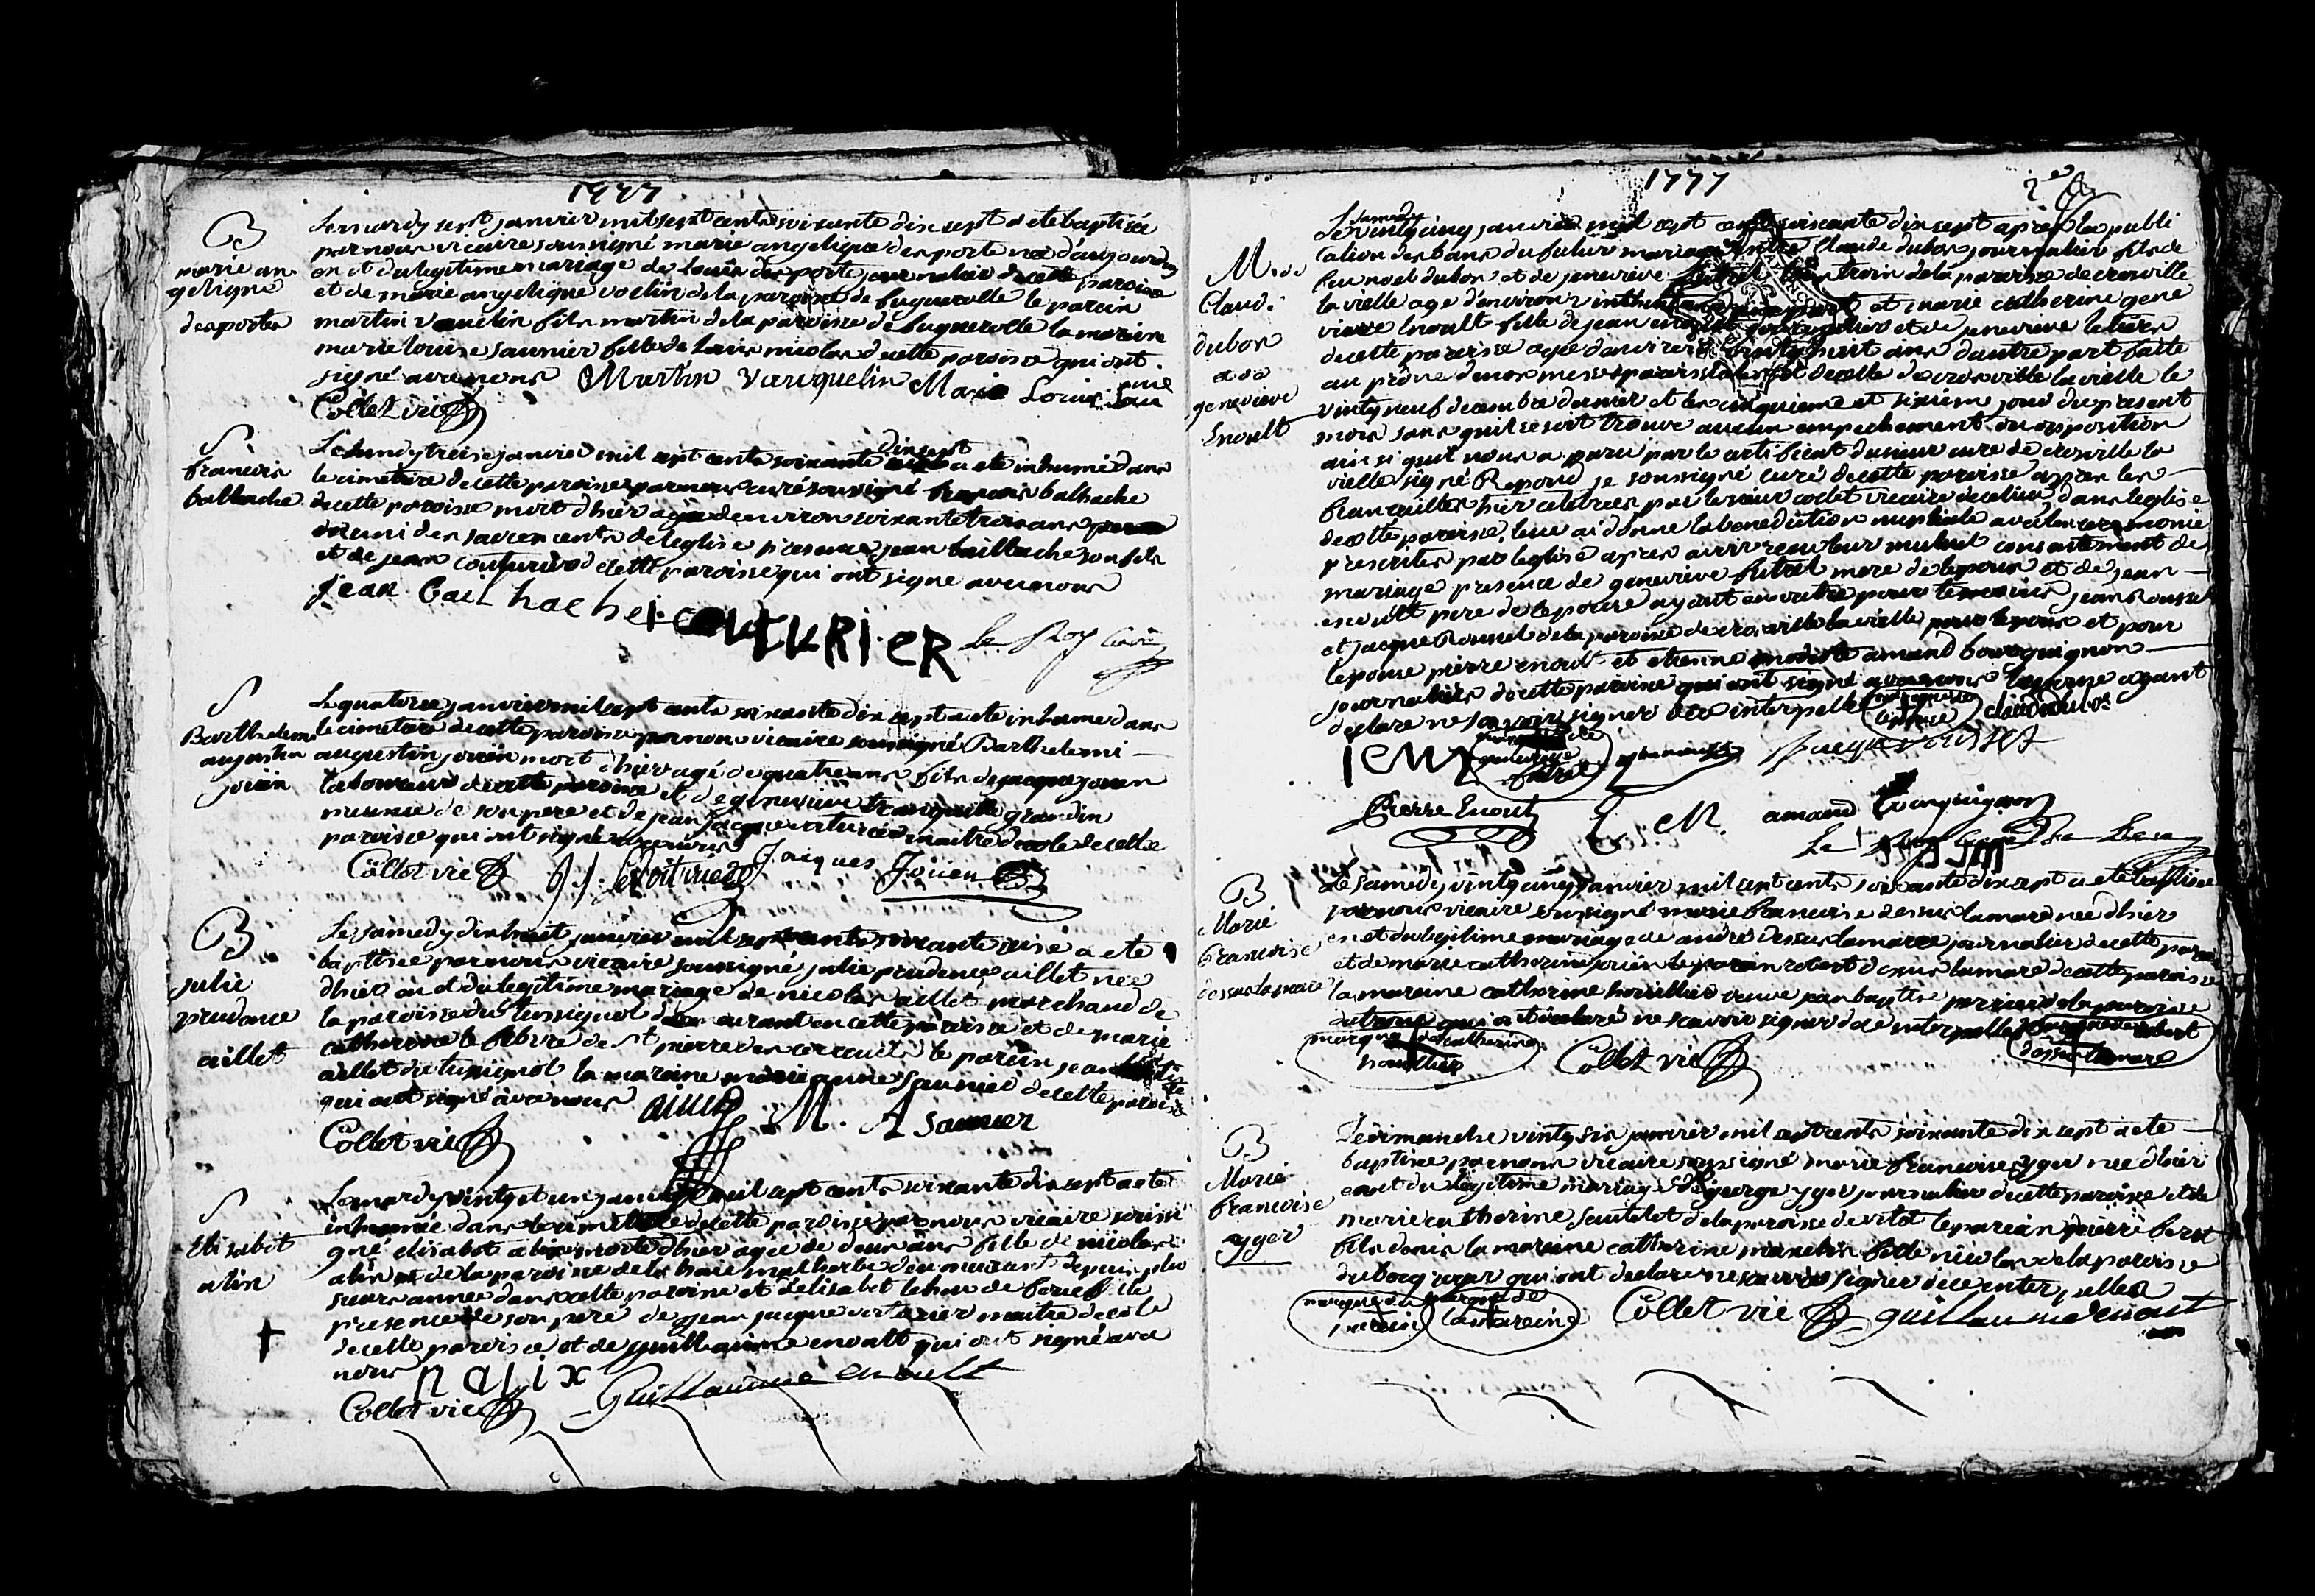 1777
B
marie an
gelique
desportes
Le mardy sept janvier mil sept cents soixante dix sept a eté baptisée
par nous vicaire soussigné marie angelique desporte née d'aujourd'huy
en et du legitime mariage de Louis desporte journalier de cette paroisse
et de marie angelique voclin de la paroisse de fuguerolle le parain
martin vauclin fils martin de la paroisse de fuguerolle la maraine
marie louise saunier fille de Louis nicolas de cette paroisse qui ont
signé avec nous Martin vauquelin Marie Louise Sau
Collet vic
S
francois
balhache
Le lundy treise janvier mil sept cents soixante dix sept a eté inhumé dans
le cimetiere de cette paroisse par nous curé soussigné francois balhache
de cette paroisse mort d'hier agé de environ soixante trois ans
muni des sacrements de l'eglise presence jean bailhache son fils
et de jean couturier de cette paroisse qui ont signé avec nous
jean Bailhache i couturier le Roy curé
S
Barthelemi
augustin
jouin
Le quatorse janvier mil sept cents soixante dix sept a eté inhumé dans
le cimetiere de cette paroisse par nous vicaire soussigné Barthelemi
augustin jouin mort d'hier agé de quatre ans fils de jacque jouen
laboureur de cette paroisse et de genevieve tranquille grandin
presence de son pere et de jean jacque voiturier maitre d'ecole de cette
paroisse qui ont signé avec nous
Collet vic J. J. Levoiturier Jacques Joüen
B
julie
prudance
aillet
Le samedy dix huit janvier mil sept cents soixante seise a eté
baptisée par nous vicaire soussigné julie prudence aillet née
d'hier en et du legitime mariage de nicolas aillet marchand de
la paroisse du tussignol demeurant en cette paroisse et de marie
catherine le febvre de St pierre des cercueils le parain jean
aillet du tussignol la maraine marie anne saunier de cette paroisse
qui ont signé avec nous aillet M. A saunier
Collet vic
S
Elisabet
alix
Le mardy vingt et un janvier mil sept cents soixante dix sept a eté
inhumée dans le cimetiere de cette paroisse par nous vicaire soussi
gné elisabet alix morte d'hier agée de deux ans fille de nicolas
alix de la paroisse de la haie malherbe demeurant depuis plu
sieurs années dans cette paroisse et d'elisabet lehoc
presence de son pere de jean jacque voiturier maitre d'ecole
de cette paroisse et de guillaume enoult qui ont signé avec
nous n alix
Collet vic Guillaume enoult
1777
2e
M. de
Claude
dubos
et de
genevieve
Enoult
Le samedy vingt cinq janvier mil sept cents soixante dix sept après la publi
cation des bans du futur mariage entre Claude dubos journalier fils de
feu noel dubos et de genevieve de la paroisse de crosville
la vielle agé d'environ et marie catherine gene
vieve enoult fille de jean enoult et de genevieve
de cette paroisse agée d'environ vingt huit ans d'autre part faite
au prône de nos messes paroissiales et de celle de crosville la vielle le
vingt neuf decembre dernier et les cinquieme et sixieme jour du present
mois sans qu'il se soit trouvé aucun empechement ou opposition
ainsi qu'il nous a paru par le certificat du sieur curé de crosville la
vielle signé je soussigné curé de cette paroisse après les
fiancailles hier celebrées par le sieur collet vicaire de ce lieu dans l'eglise
de cette paroisse leur ai donné la benediction nuptiale avec les ceremonie
prescrites par l'eglise après avoir reçu leur mutuel consentement de
mariage presence de genevieve futrel mere de l'epoux et de jean
enoult pere de l'epouse ayant en outre pour temoins jean roussel
et jacque Roussel de la paroisse de crosville la vielle pour l'epoux et pour
l'epouse pierre enoult et etienne amand bourguignon
journaliers de cette paroisse qui ont signé avec nous l'epouse ayant
declaré ne savoir signer de ce interpellée marque de l'epouse claude dubos
marque de genevieve futrel jacque roussel
Pierre Enoult E. M. amand bourguignon
B
Marie
francoise
dessus la mare
Le samedy vingt cinq janvier mil sept cents soixante dix sept a eté baptisée
par nous vicaire soussigné marie francoise dessus lamare née d'hier
en et du legitime mariage de andré dessus lamare journalier de cette paroisse
et de marie catherine le parain robert dessus lamare de cette paroisse
la maraine catherine houllier veuve jean baptiste de la paroisse
qui ont declaré ne scavoir signer de ce interpellés marque de robert
dessus lamare
marque de catherine
houllier Collet vic
B
Marie
francoise
yger
Le dimanche vingt six janvier mil sept cents soixante dix sept a eté
baptisée par nous vicaire soussigné marie francoise yger née d'hier
en et du legitime mariage de george yger journalier de cette paroisse et de
marie catherine sautelet de la paroisse de vitot le parain pierre
fils denis la maraine catherine fille nicolas de la paroisse
du bocq qui ont declaré ne savoir signer de ce interpellés
marque du parain marque de la maraine Collet vic guillaume enoult